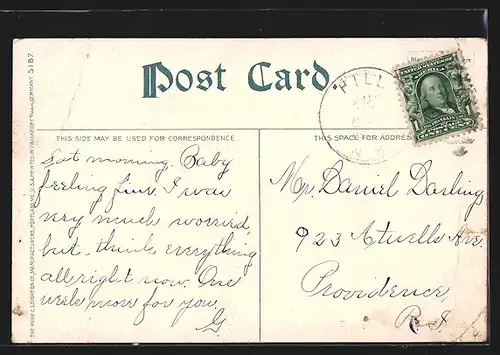 POST CARD
THIS SIDE MAY BE USED FOR CORRESPONDENCE
THIS SPACE FOR ADDRESS
THE HUGH C. LEIGHTON CO., MANUFACTURERS, PORTLAND, ME., U.S.A. PRINTED IN FRANKFORT GERMANY. 5187
morning. Baby
feeling fine. I was
very much worried
but think everything
all right now. One
week more for you
G.
Mr. Daniel Darling
923 Atwells Ave.
Providence,
R. I.